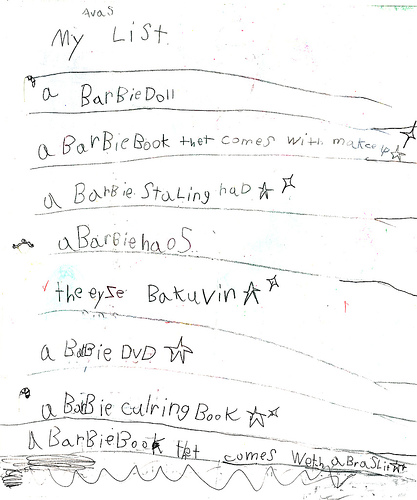 Avas
My List
a BarBie Doll
a BarBie Book thet comes with makeup
a BarBie Staling had
a Barbie haos
the eyse Bakuvin
a BarBie DVD
a BarBie culring Book
a BarBie Book thet comes Weth a BraSlit